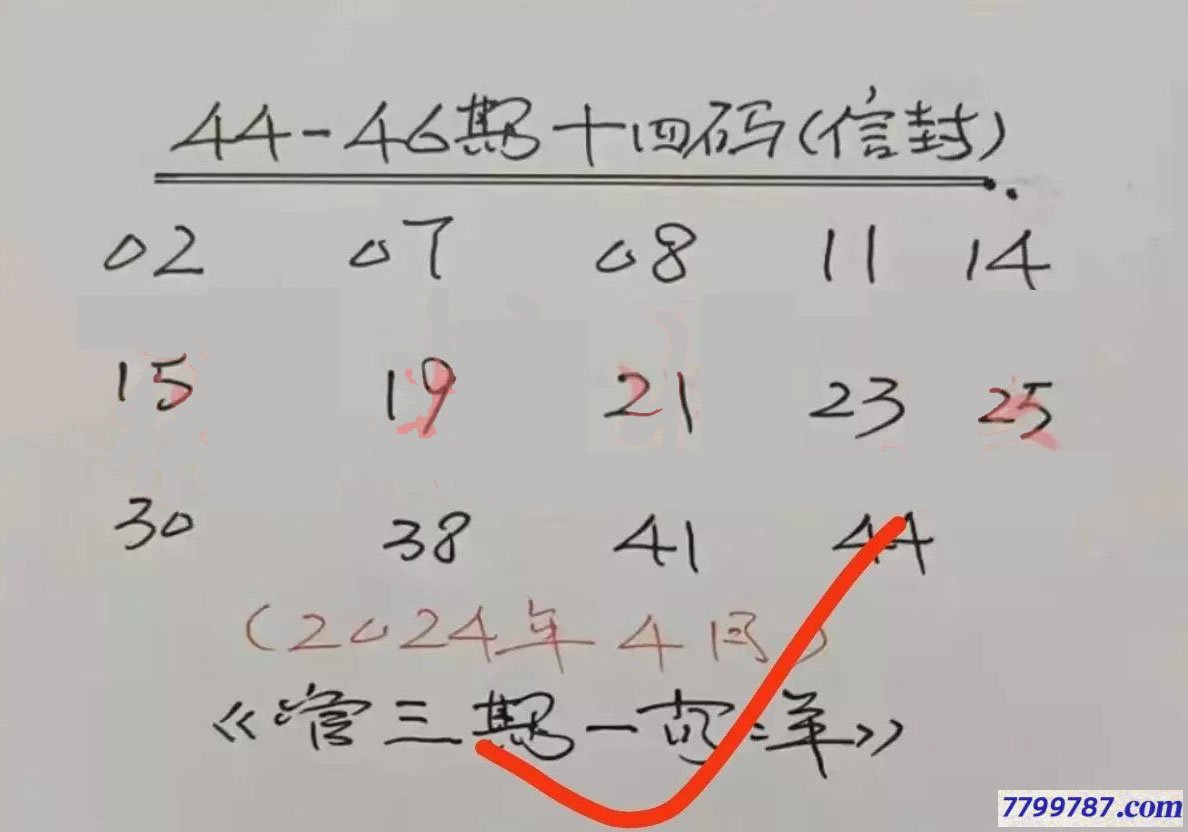 44-46期十四码(信封)
02 07 08 11 14
15 19 21 23 25
30 38 41 44
(2024年4月)
《管三期一肖:羊》
7799787.com